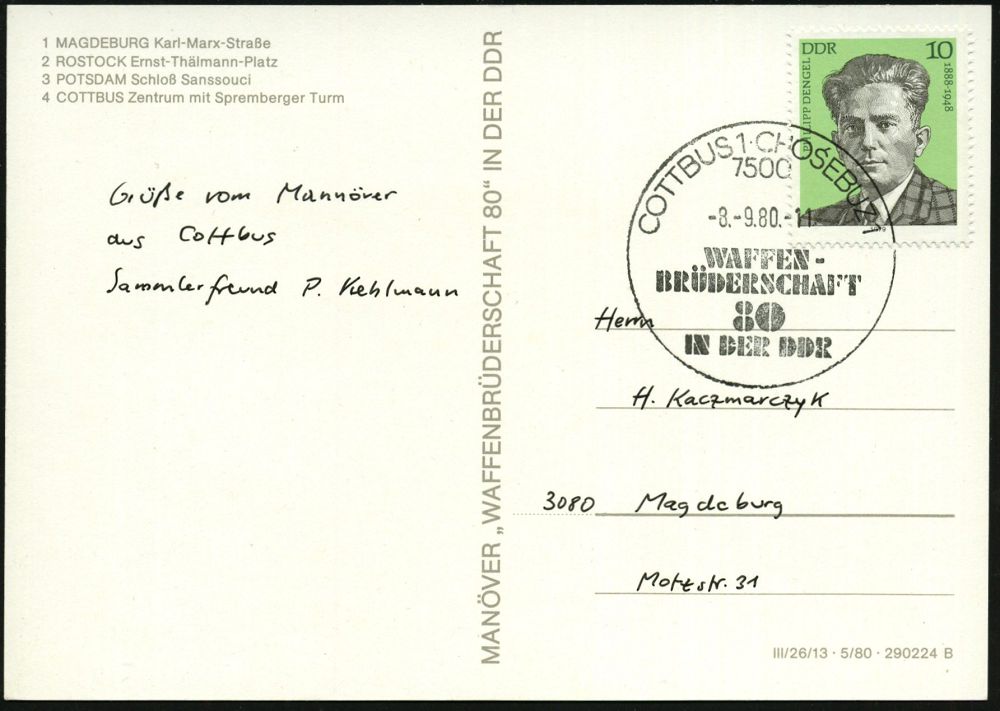 1 MAGDEBURG Karl-Marx-Straße
2 ROSTOCK Ernst-Thälmann-Platz
3 POTSDAM Schloß Sanssouci
4 COTTBUS Zentrum mit Spremberger Turm
Grüße vom Mannöver
aus Cottbus
Sammlerfreund P. Kehlmann
MANÖVER „WAFFENBRÜDERSCHAFT 80“ IN DER DDR
DDR 10
PHILIPP DENGEL
1888-1948
COTTBUS 1 · CHOŚEBUZ 1
7500
-8.-9.80.-11
WAFFEN-
BRÜDERSCHAFT
80
IN DER DDR
Herrn
H. Kaczmarczyk
3080 Magdeburg
Motzstr. 31
III/26/13 · 5/80 · 290224 B